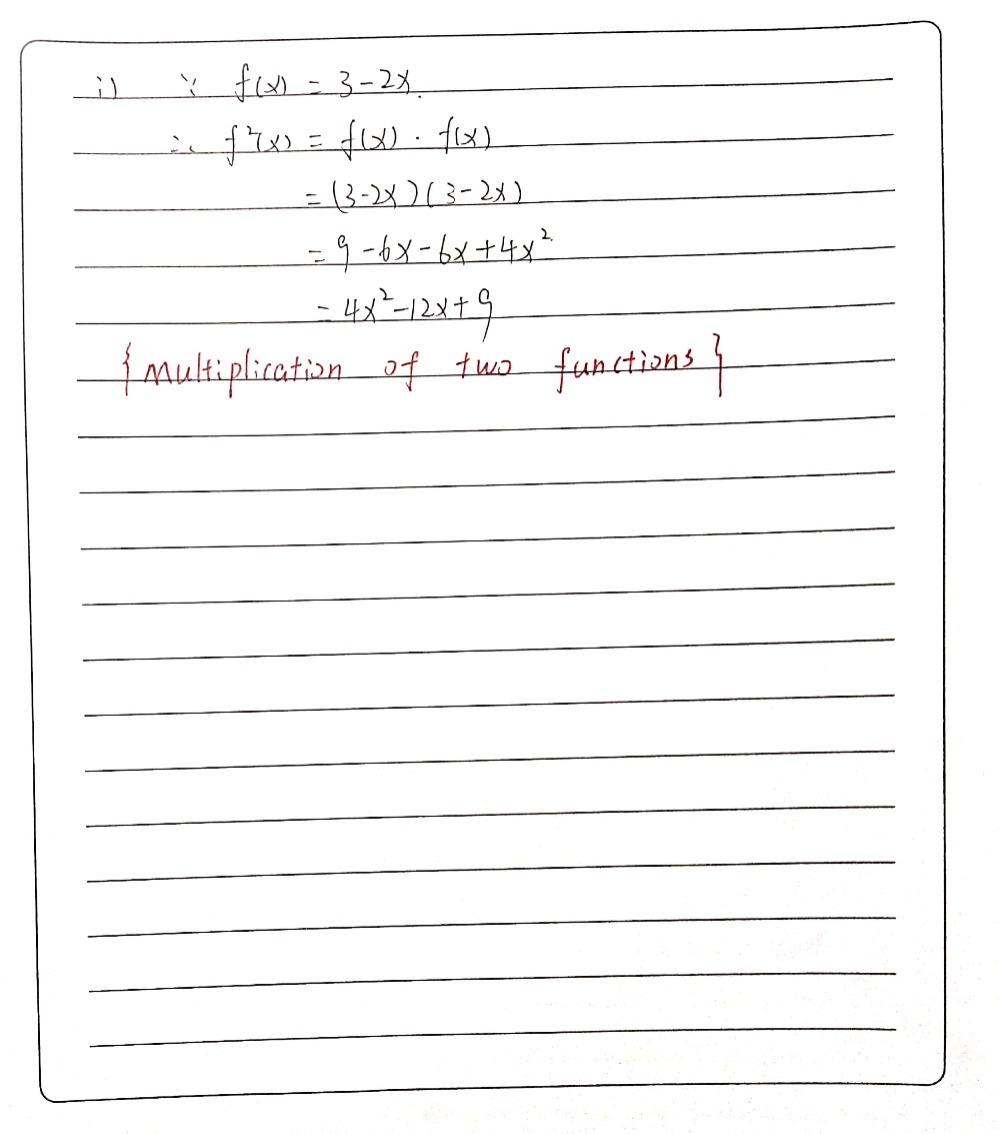 i) ∵ f(x) = 3-2x.
∴ f²(x) = f(x) · f(x)
= (3-2x)(3-2x)
= 9-6x-6x+4x²
= 4x²-12x+9
{multiplication of two functions}